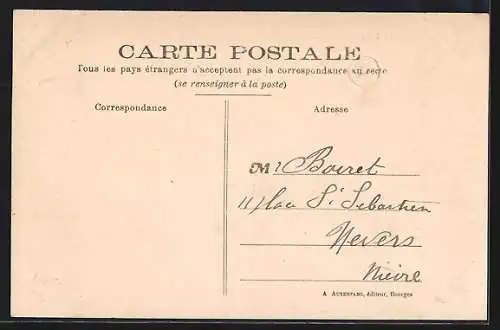 CARTE POSTALE
Tous les pays étrangers n'acceptent pas la correspondance au recto
(se renseigner à la poste)
Correspondance
Adresse
Mr Boiret
11 place St Sebastien
Nevers
Nièvre
A. AUXENFANS, éditeur, Bourges